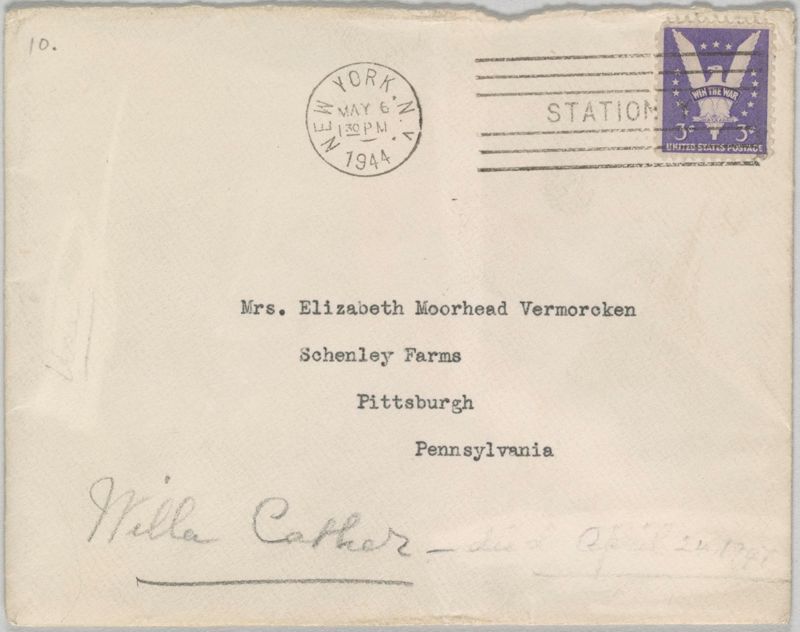 10.
NEW YORK, N.Y.
MAY 6
1 30 PM
1944
STATION
WIN THE WAR
3¢ 3¢
UNITED STATES POSTAGE
Mrs. Elizabeth Moorhead Vermorcken
Schenley Farms
Pittsburgh
Pennsylvania
Willa Cather – died April 24 1947